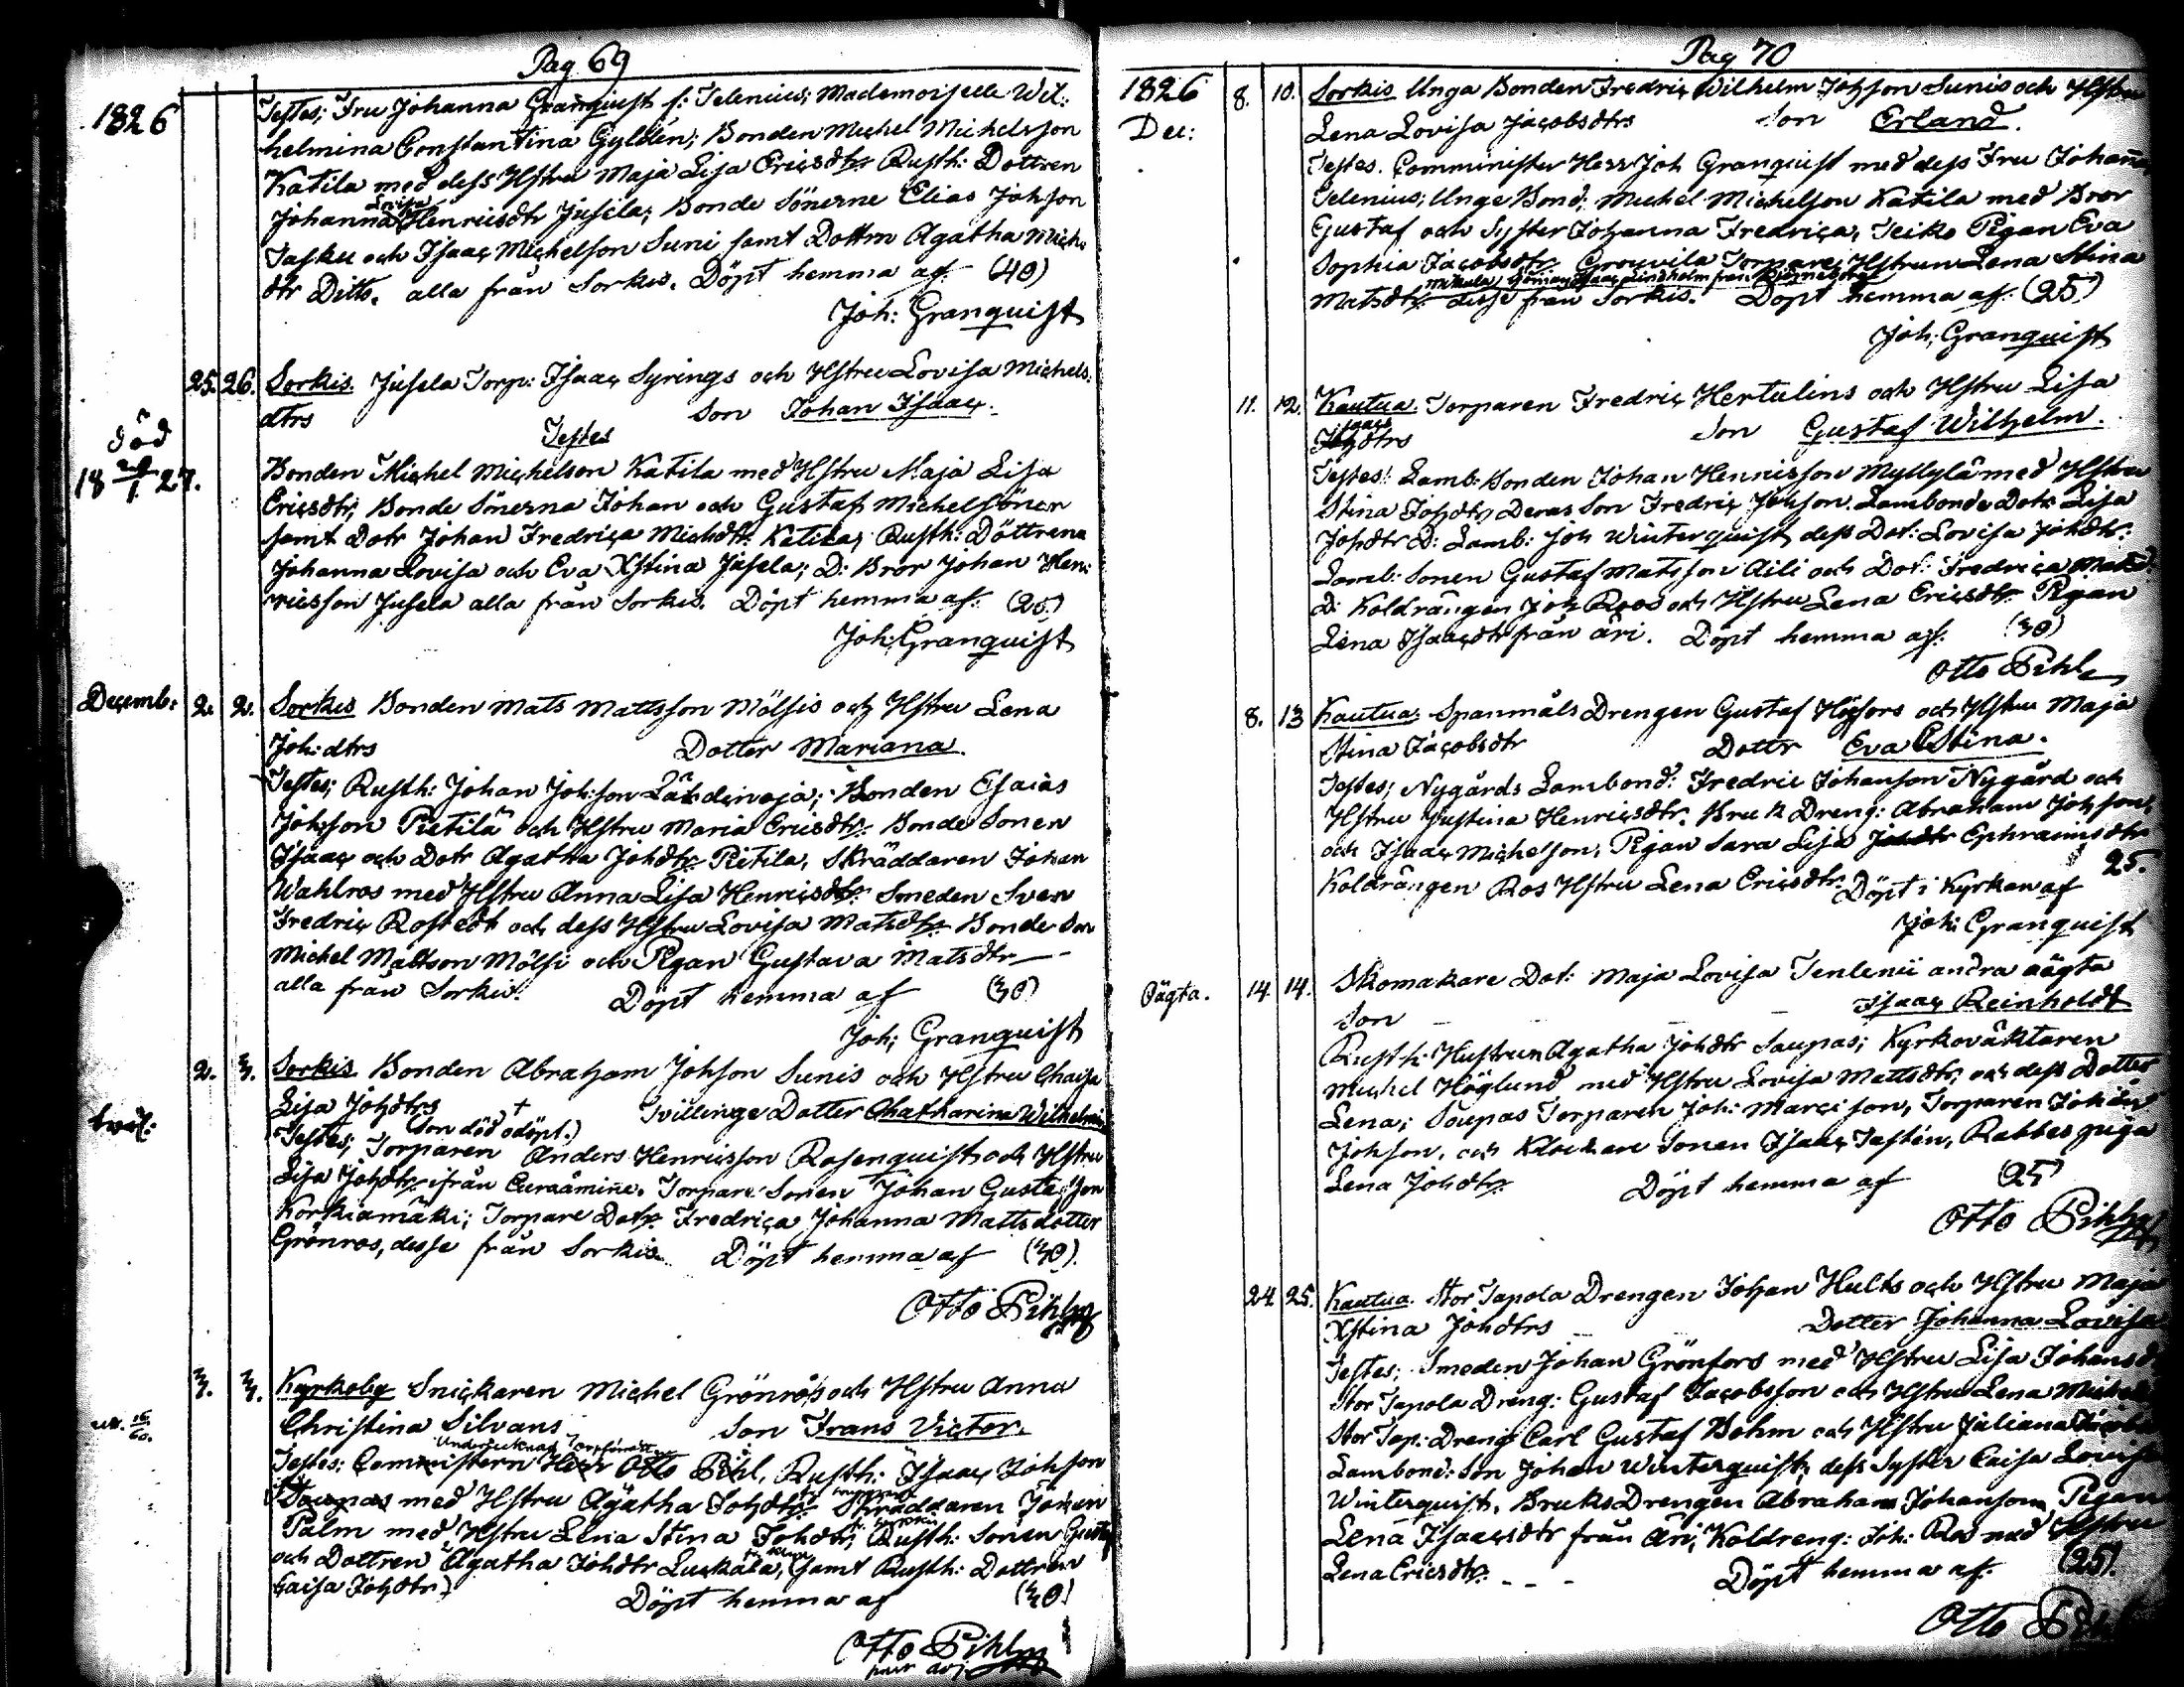 Pag 69
1826
Testes; Fru Johanna Granquist f: Selenius; Mademoiselle Wil:
helmina Constantina Gyldén; Bonden Michel Michelsson
Katila med dess Hstru Maja Lisa Ericsdtr. Rusth: Dottren
Lovisa
Johanna Henricsdtr Jusela; Bonde Sönerne Elias Johsson
Tasku och Isaac Michelsson Suni samt Dottren Agatha Mich:
dtr Ditto. alla från Sorkis. Döpt hemma af. (40)
Joh: Granquist
25. 26. Sorkis. Jusela Torp: Isaac Syrings och Hstru Lovisa Michels:
dtrs Son Johan Isaac.
död
18 1 27.
Testes
Bonden Michel Michelson Katila med Hstru Maja Lisa
Ericsdtr; Bonde Sönerna Johan och Gustaf Michelssöner
samt Dotr Johan Fredrica Michdtr. Katila; Rusth: Döttrena
Johanna Lovisa och Eva Xstina Jusela; D: Bror Johan Hen:
ricsson Jusela alla från Sorkis. Döpt hemma af.
Joh: Granquist
Decemb: 2. 2. Sorkis Bonden Mats Mattsson Mölsis och Hstru Lena
Joh:dtrs Dotter Mariana.
Testes; Rusth: Johan Joh:son; Bonden Esaias
Johsson Pietilä och Hstru Maria Ericsdtr. Bonde Sonen
Isaac och Dotr Agatha Johdtr. Pietila, Skräddaren Johan
Wahlros med Hstru Anna Lisa Henricsdtr. Smeden Sven
Fredric Rostedt och dess Hstru Lovisa Matsdtr. Bonde Son
Michel Mattson Mölsi och Pigan Gustava Matsdtr
alla från Sorkis. Döpt hemma af (30)
Joh; Granquist
2. 3. Sorkis Bonden Abraham Johson Sunis och Hstru Chaisa
Lisa Johdtrs + Tvillinge Dotter Chatharina Wilhelmin
(Son död odöpt.)
Testes; Torparen Anders Henricsson Rosenquist och Hstru
Lisa Johdtr. ifrån Euraåminne. Torpare Sonen Johan Gustafson
Korkiamäki; Torpare Dotr. Fredrica Johanna Mattsdotter
Grönros, desse från Sorkis. Döpt hemma af (30).
Otto Pihl
3. 3. Kyrkoby Snickaren Michel Grönrös och Hstru Anna
Christina Silvans Son Frans Victor.
Undertecknad
Testes: Comministern Herr Otto Pihl, Rusth: Isaac Johsson
med Hstru Agatha Johdtr. Skräddaren Johan
Palm med Hstru Lena Stina Johdtr; Rusth: Sonen Gustaf
och Dottren Agatha Johdtr Luskala, samt Rusth: Dottren
Caisa Johdtr) Döpt hemma af (30)
Otto Pihl
Pag 70
1826
Dec:
8. 10. Sorkis Unga Bonden Fredric Wilhelm Johsson Sunis och Hstru
Lena Lovisa Jacobsdtrs Son Erland.
Testes. Comminister Herr Joh Granquist med dess Fru Johanna
Selenius; Unge Bond; Michel Michelson Katila med Bror
Gustaf och Syster Johanna Fredrica, Seiko Pigan Eva
Sophia Jacobsdtr. Crouvila Torpare Hstrun Lena Stina
Matsdtr. desse från Sorkis. Döpt hemma af: (25)
Joh; Granquist
11. 12. Kautua. Torparen Fredric Hertulins och Hstru Lisa
Isaacs
dtrs Son Gustaf Wilhelm.
Testes: Lamb: Bonden Johan Henricsson Myllylä med Hstru
Stina Johdtr, Deras Son Fredric Johson. Lambonde Dotr Lisa
Johdtr D: Lamb: Joh Winterquist dess Dot: Lovisa Johdtr:
Lamb: Sonen Gustaf Matsson Aili och Dot: Fredrica Mats:
D: Koldrängen Joh Roos och Hstru Lena Ericsdtr. Pigan
Lena Isaacsdtr från Äri. Döpt hemma af: (30)
Otto Pihl
8. 13 Kautua. Spanmåls Drengen Gustaf Högfors och Hstru Maja
Stina Jacobsdtr Dottr Eva Stina.
Testes; Nygårds Lambond: Fredric Johanson Nygård och
Hstru Justina Henricsdtr. Bruk Dreng: Abraham Johsson,
och Isaac Michelson, Pigan Sara Lisa Ephraimsdtr
Koldrängen Ros Hstru Lena Ericsdtr. Döpt i Kyrkan af 25.
Joh: Granquist
Oägta. 14. 14. Skomakare Dot: Maja Lovisa Tenlenii andra oägta
Son Isaac Reinholdt
Rusth: Hustrun Agatha Johdtr Saupas; Kyrkoväktaren
Michel Höglund med Hstru Lovisa Mattsdtr; och dess Dotter
Lena; Soupas Torparen Joh: Marcisson, Torparen Johan
Johson, och Klockare Sonen Isaac Tastén, Rabbes piga
Lena Johdtr. Döpt hemma af (25)
Otto Pihl
24. 25. Kautua. Stor Tapola Drengen Johan Hults och Hstru Maja
Xstina Johdtrs Dotter Johanna Lovisa
Testes; Smeden Johan Grönfors med Hstru Lisa Johansd
Stor Tapola Dreng: Gustaf Jacobsson och Hstru Lena Michels
Stor Tap: Dreng Carl Gustaf Bohm och Hstru Juliana
Lambond: Son Johan Winterquist, dess Syster Caisa Lovisa
Winterquist. Bruks Drengen Abraham Johanson, Pigan
Lena Isaacsdtr från Äri, Koldreng: Joh: Ros med Hstru
Lena Ericsdtr. Döpt hemma af. (25).
Otto